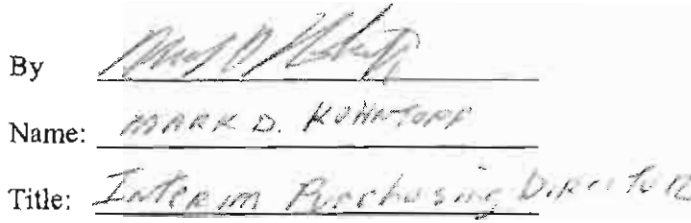 By
Name: MARK D.
Title: Interim Purchasing Director